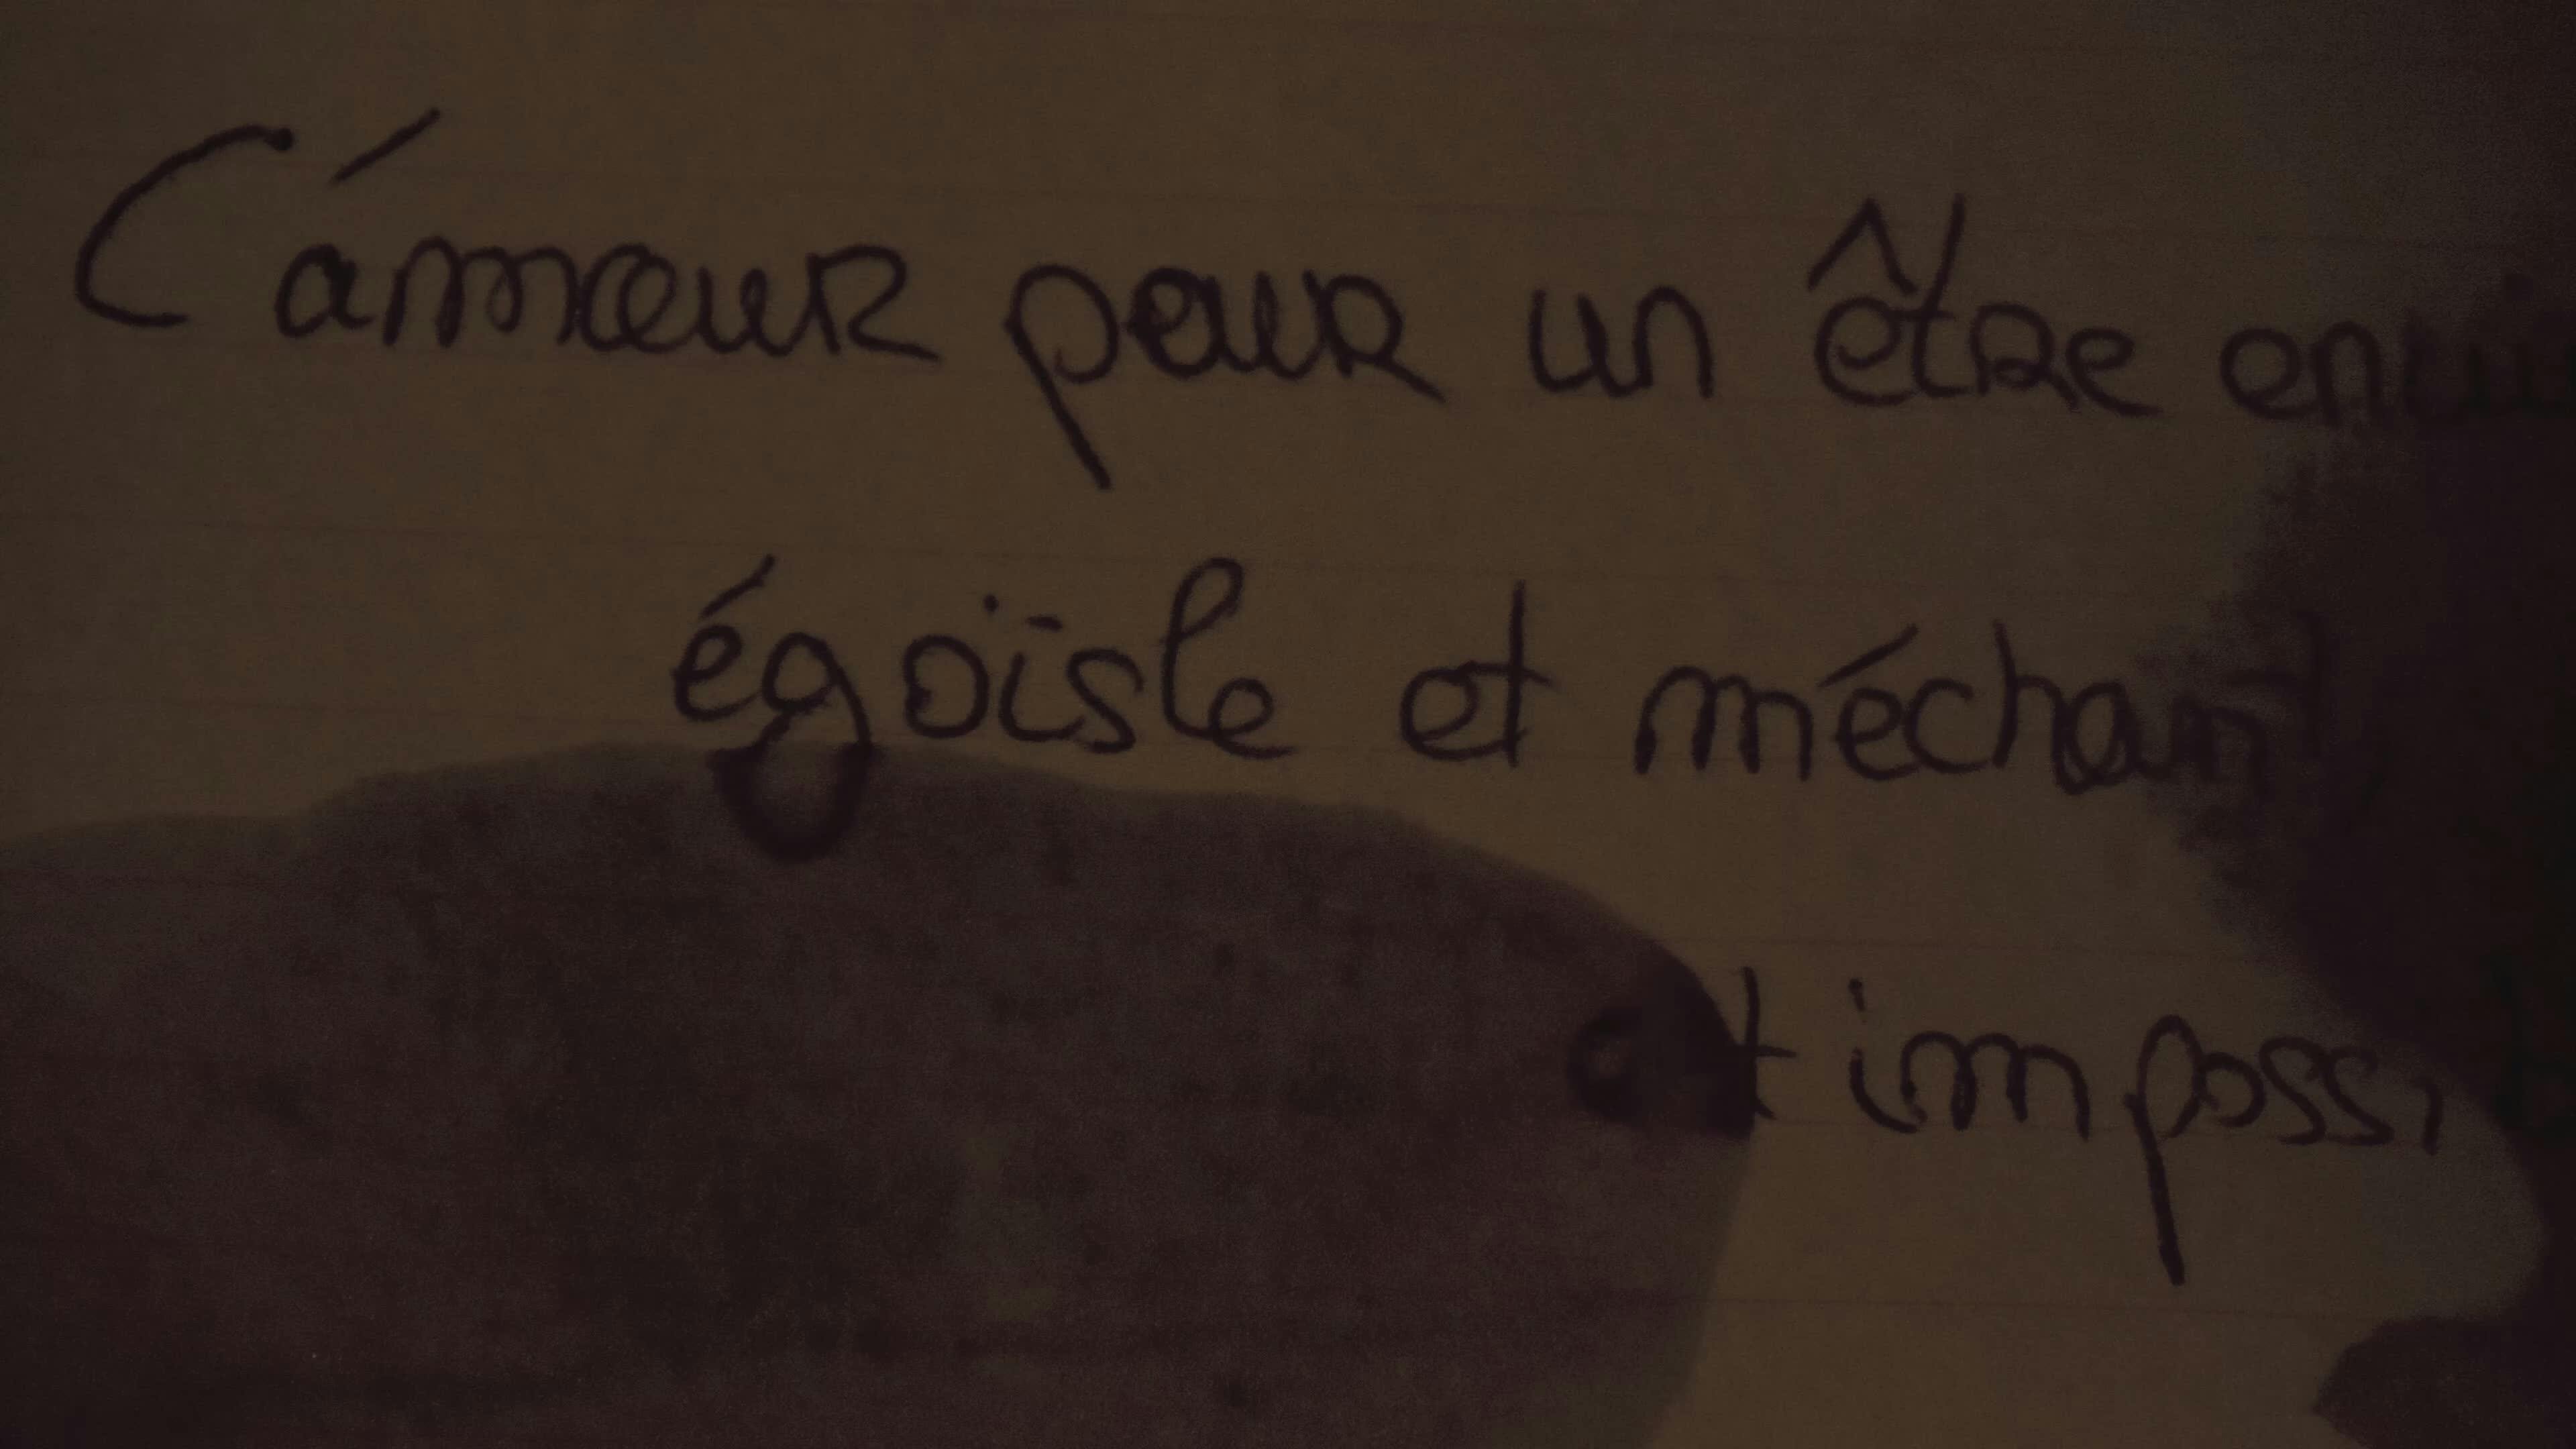 L'amour pour un être
égoïste et méchant
impossi